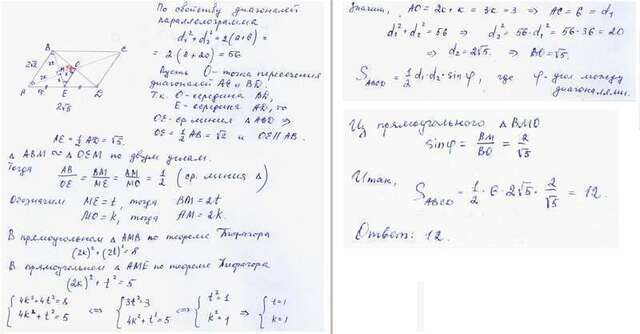 По свойству диагоналей
параллелограмма
d₁² + d₂² = 2(a+b) =
= 2(8+20) = 56
Пусть O - точка пересечения
диагоналей AC и BD.
Т.к O - середина BD,
E - середина AD, то
OE - ср. линия △ABD ⇒
AE = ½ AD = √5. OE = ½ AB = √2 и OE ∥ AB.
△ABM ∾ △OEM по двум углам.
Тогда AB/OE = BM/ME = AM/MO = (ср. линия △)
Обозначим ME = t, тогда BM = 2t
MO = k, тогда AM = 2k.
В прямоугольном △AMB по теореме Пифагора
(2k)² + (2t)² = 8
В прямоугольном △AME по теореме Пифагора
(2k)² + t² = 5
{ 4k² + 4t² = 8 ⇔ { 3t² = 3 ⇔ { t² = 1 ⇒ { t = 1
4k² + t² = 5 4k² + t² = 5 k² = 1 k = 1
B C
O
M
2√2
A E D
2√5
Значит, AO = 2k + k = 3k = 3 ⇒ AC = 6 = d₁
d₁² + d₂² = 56 ⇒ d₂² = 56 - d₁² = 56 - 36 = 20
⇒ d₂ = 2√5. ⇒ BO = √5.
S_ABCD = ½ d₁·d₂·sinφ, где φ - угол между
диагоналями.
Из прямоугольного △BMO
sinφ = BM/BO = 2/√5
Итак,
S_ABCD = ½ · 6 · 2√5 · 2/√5 = 12.
Ответ: 12.